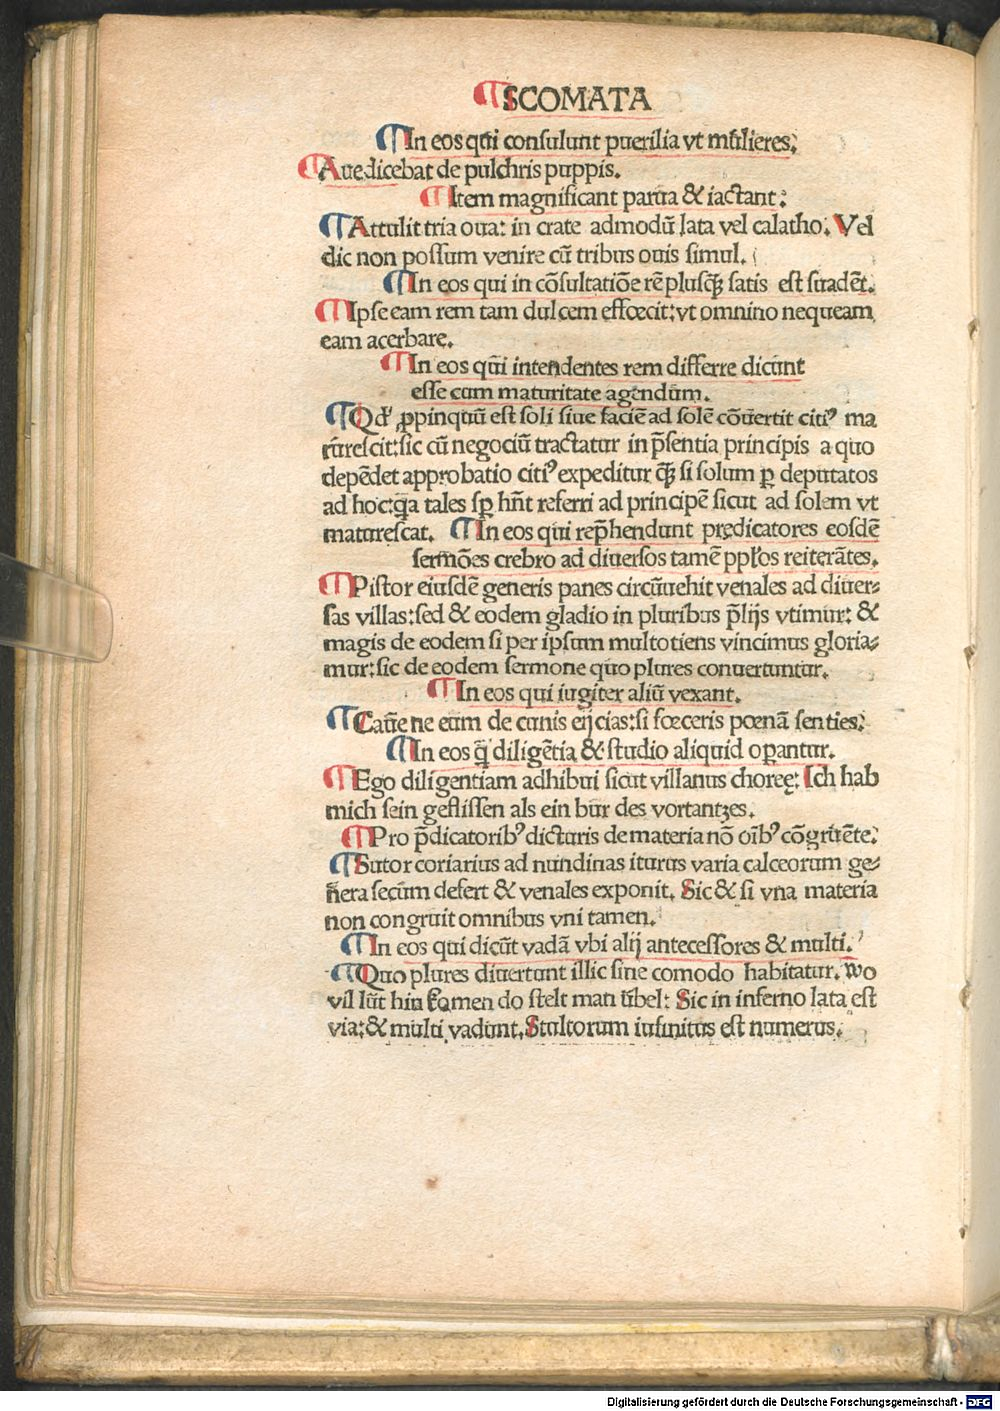 ¶ SCOMATA
¶ In eos qui consulunt puerilia vt mulieres:
¶ Aue dicebat de pulchris puppis.
¶ Item magnificant parua & iactant:
¶ Attulit tria oua: in crate admodū lata vel calatho. Vel
dic non possum venire cū tribus ouis simul.
¶ In eos qui in cōsultatiōe rē plusq̄ȝ satis est suadēt.
¶ Ipse eam rem tam dulcem effœcit: vt omnino nequeam
eam acerbare.
¶ In eos qui intendentes rem differre dicunt
esse cum maturitate agendum.
¶ Qd' ꝓpinquiū est soli siue faciē ad solē cōuertit citiꝰ ma
turescit: sic cū negociū tractatur in p̄sentia principis a quo
depēdet approbatio citiꝰ expeditur q̄ȝ si solum ꝑ deputatos
ad hoc: q̄a tales sꝑ hn̄t referri ad principē sicut ad solem vt
maturescat. ¶ In eos qui rep̄hendunt prędicatores eosdē
sermōes crebro ad diuersos tamē pplos reiterātes.
¶ Pistor eiusdē generis panes circūuehit venales ad diuer-
sas villas: sed & eodem gladio in pluribus p̄lijs vtimur: &
magis de eodem si per ipsum multotiens vincimus gloria-
mur: sic de eodem sermone quo plures conuertuntur.
¶ In eos qui iugiter aliū vexant.
¶ Caue ne eum de cunis eijcias: si fœceris pœnā senties:
¶ In eos q̄ diligētia & studio aliquid oꝑantur.
¶ Ego diligentiam adhibui sicut villanus choreę: Ich hab
mich sein geflissen als ein bur des vortantzes.
¶ Pro p̄dicatoribꝰ dicturis de materia nō oībꝰ cōgruēte:
¶ Sutor coriarius ad nundinas iturus varia calceorum ge-
nera secum defert & venales exponit. Sic & si vna materia
non congruit omnibus vni tamen.
¶ In eos qui dicūt vadā vbi alij antecessores & multi.
¶ Quo plures diuertunt illic sine comodo habitatur. Wo
vil lüt hin komen do stelt man übel: Sic in inferno lata est
via: & multi vadunt. Stultorum iufinitus est numerus.
Digitalisierung gefördert durch die Deutsche Forschungsgemeinschaft - DFG